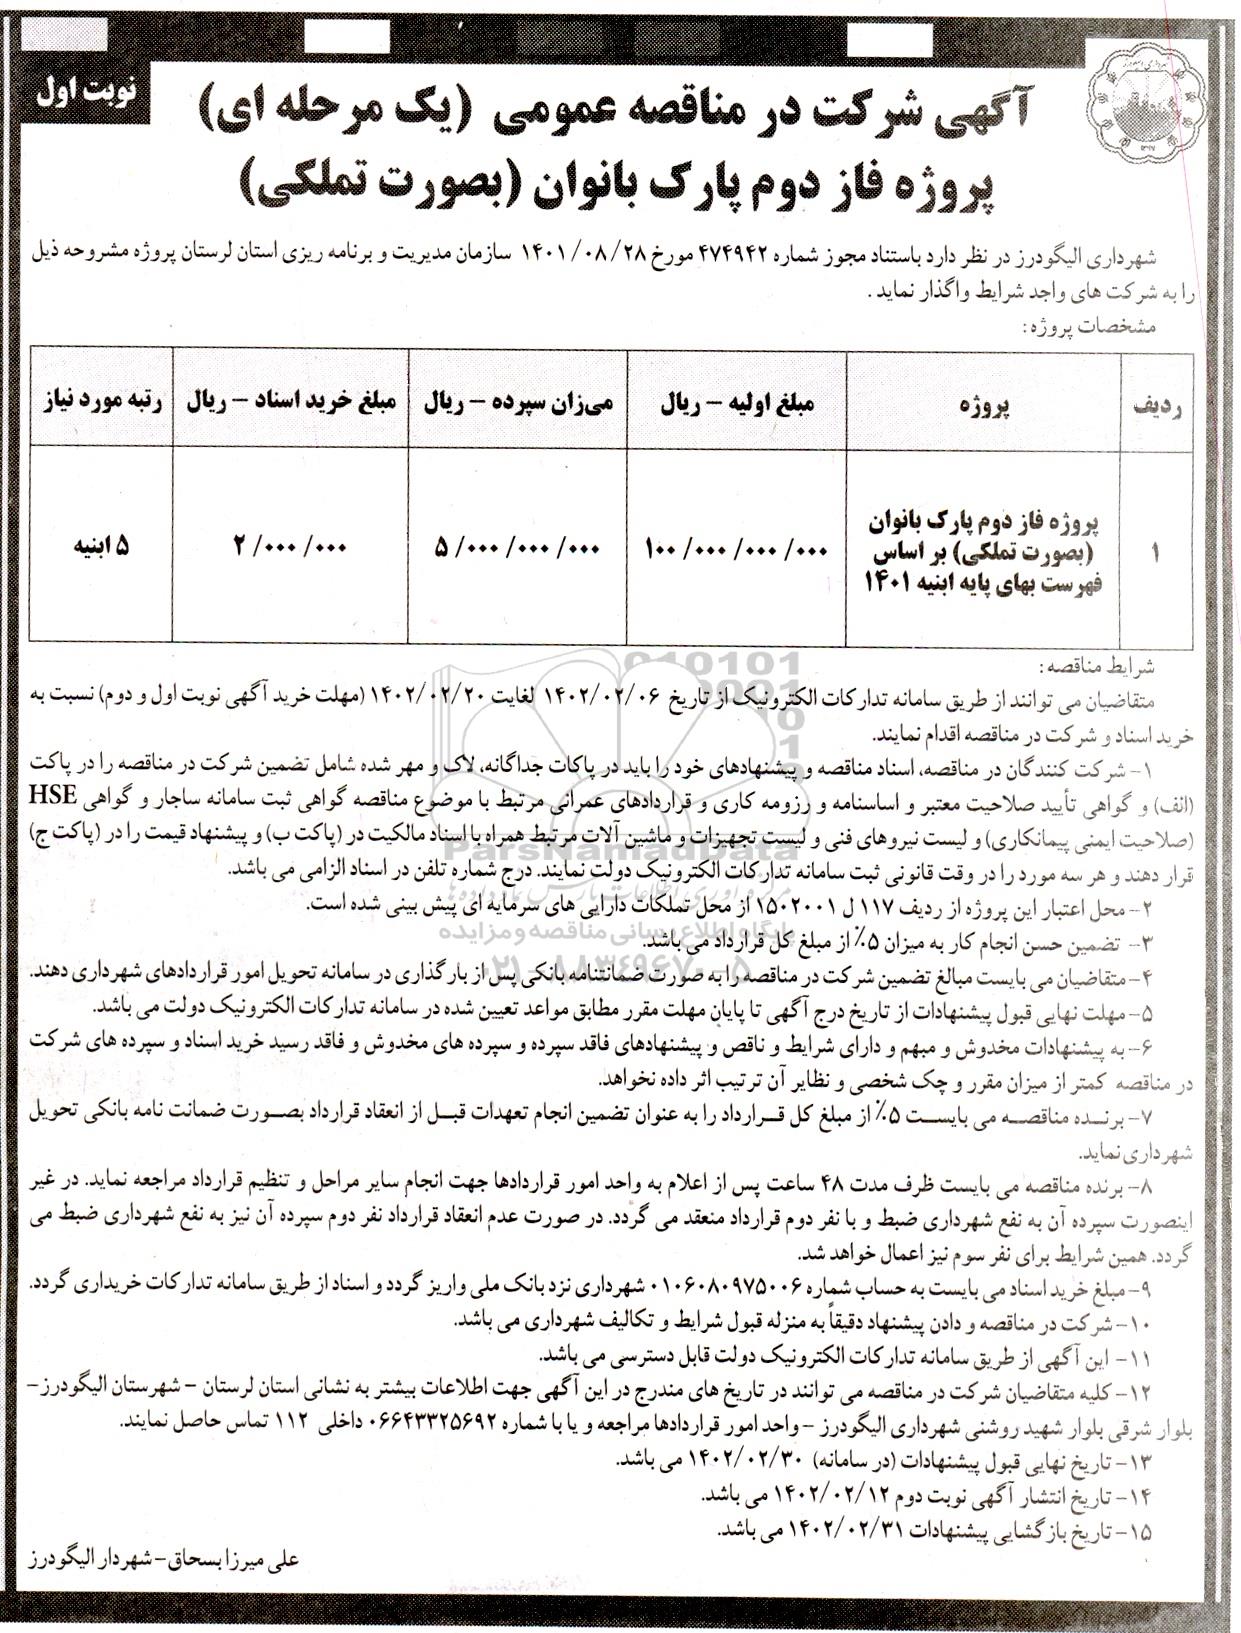 نوبت اول
آگهی شرکت در مناقصه عمومی (یک مرحله ای)
پروژه فاز دوم پارک بانوان (بصورت تملکی)
شهرداری الیگودرز در نظر دارد باستناد مجوز شماره ۴۷۴۹۴۲ مورخ ۱۴۰۱/۰۸/۲۸ سازمان مدیریت و برنامه ریزی استان لرستان پروژه مشروحه ذیل
را به شرکت های واجد شرایط واگذار نماید.
مشخصات پروژه:
ردیف پروژه مبلغ اولیه – ریال میزان سپرده – ریال مبلغ خرید اسناد – ریال رتبه مورد نیاز
۱ پروژه فاز دوم پارک بانوان (بصورت تملکی) بر اساس فهرست بهای پایه ابنیه ۱۴۰۱ ۱۰۰/۰۰۰/۰۰۰/۰۰۰ ۵/۰۰۰/۰۰۰/۰۰۰ ۲/۰۰۰/۰۰۰ ۵ ابنیه
شرایط مناقصه:
متقاضیان می توانند از طریق سامانه تدارکات الکترونیک از تاریخ ۱۴۰۲/۰۲/۰۶ لغایت ۱۴۰۲/۰۲/۲۰ (مهلت خرید آگهی نوبت اول و دوم) نسبت به
خرید اسناد و شرکت در مناقصه اقدام نمایند.
۱- شرکت کنندگان در مناقصه، اسناد مناقصه و پیشنهادهای خود را باید در پاکات جداگانه، لاک و مهر شده شامل تضمین شرکت در مناقصه را در پاکت
(الف) و گواهی تأیید صلاحیت معتبر و اساسنامه و رزومه کاری و قراردادهای عمرانی مرتبط با موضوع مناقصه گواهی ثبت سامانه ساجار و گواهی HSE
(صلاحیت ایمنی پیمانکاری) و لیست نیروهای فنی و لیست تجهیزات و ماشین آلات مرتبط همراه با اسناد مالکیت در (پاکت ب) و پیشنهاد قیمت را در (پاکت ج)
قرار دهند و هر سه مورد را در وقت قانونی ثبت سامانه تدارکات الکترونیک دولت نمایند. درج شماره تلفن در اسناد الزامی می باشد.
۲- محل اعتبار این پروژه از ردیف ۱۱۷ ل ۱۵۰۲۰۰۱ از محل تملکات دارایی های سرمایه ای پیش بینی شده است.
۳- تضمین حسن انجام کار به میزان ۵٪ از مبلغ کل قرارداد می باشد.
۴- متقاضیان می بایست مبالغ تضمین شرکت در مناقصه را به صورت ضمانتنامه بانکی پس از بارگذاری در سامانه تحویل امور قراردادهای شهرداری دهند.
۵- مهلت نهایی قبول پیشنهادات از تاریخ درج آگهی تا پایان مهلت مقرر مطابق مواعد تعیین شده در سامانه تدارکات الکترونیک دولت می باشد.
۶- به پیشنهادات مخدوش و مبهم و دارای شرایط و ناقص و پیشنهادهای فاقد سپرده و سپرده های مخدوش و فاقد رسید خرید اسناد و سپرده های شرکت
در مناقصه کمتر از میزان مقرر و چک شخصی و نظایر آن ترتیب اثر داده نخواهد.
۷- برنده مناقصه می بایست ۵٪ از مبلغ کل قرارداد را به عنوان تضمین انجام تعهدات قبل از انعقاد قرارداد بصورت ضمانت نامه بانکی تحویل
شهرداری نماید.
۸- برنده مناقصه می بایست ظرف مدت ۴۸ ساعت پس از اعلام به واحد امور قراردادها جهت انجام سایر مراحل و تنظیم قرارداد مراجعه نماید. در غیر
اینصورت سپرده آن به نفع شهرداری ضبط و با نفر دوم قرارداد منعقد می گردد. در صورت عدم انعقاد قرارداد نفر دوم سپرده آن نیز به نفع شهرداری ضبط می
گردد. همین شرایط برای نفر سوم نیز اعمال خواهد شد.
۹- مبلغ خرید اسناد می بایست به حساب شماره ۰۱۰۶۰۸۰۹۷۵۰۰۶ شهرداری نزد بانک ملی واریز گردد و اسناد از طریق سامانه تدارکات خریداری گردد.
۱۰- شرکت در مناقصه و دادن پیشنهاد دقیقاً به منزله قبول شرایط و تکالیف شهرداری می باشد.
۱۱- این آگهی از طریق سامانه تدارکات الکترونیک دولت قابل دسترسی می باشد.
۱۲- کلیه متقاضیان شرکت در مناقصه می توانند در تاریخ های مندرج در این آگهی جهت اطلاعات بیشتر به نشانی استان لرستان – شهرستان الیگودرز –
بلوار شرقی بلوار شهید روشنی شهرداری الیگودرز – واحد امور قراردادها مراجعه و یا با شماره ۰۶۶۴۳۳۲۵۶۹۲ داخلی ۱۱۲ تماس حاصل نمایند.
۱۳- تاریخ نهایی قبول پیشنهادات (در سامانه) ۱۴۰۲/۰۲/۳۰ می باشد.
۱۴- تاریخ انتشار آگهی نوبت دوم ۱۴۰۲/۰۲/۱۲ می باشد.
۱۵- تاریخ بازگشایی پیشنهادات ۱۴۰۲/۰۲/۳۱ می باشد.
علی میرزا بسحاق – شهردار الیگودرز
ParsNamadData
پایگاه اطلاع رسانی مناقصه و مزایده
۰۲۱-۸۸۳۴۹۶۷۰-۵